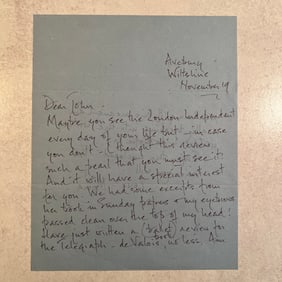 Avebury
Wiltshire
November 19
Dear John
Maybe you see the London Independent
every day of your life but - in case
you don't - I thought this review
such a pearl that you must see it.
And it will have a special interest
for you. We had some excerpts from
her book in Sunday papers & my eyebrows
passed clean over the top of my head!
Have just written a (ballet) review for
book
the Telegraph - de Valois, no less. Am